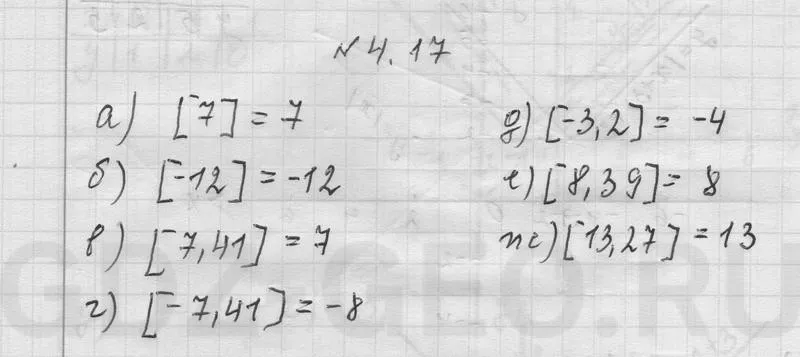 № 4.17
а) [7] = 7
б) [-12] = -12
в) [7,41] = 7
г) [-7,41] = -8
д) [-3,2] = -4
е) [8,39] = 8
ж) [13,27] = 13
GDZ-GEO.RU